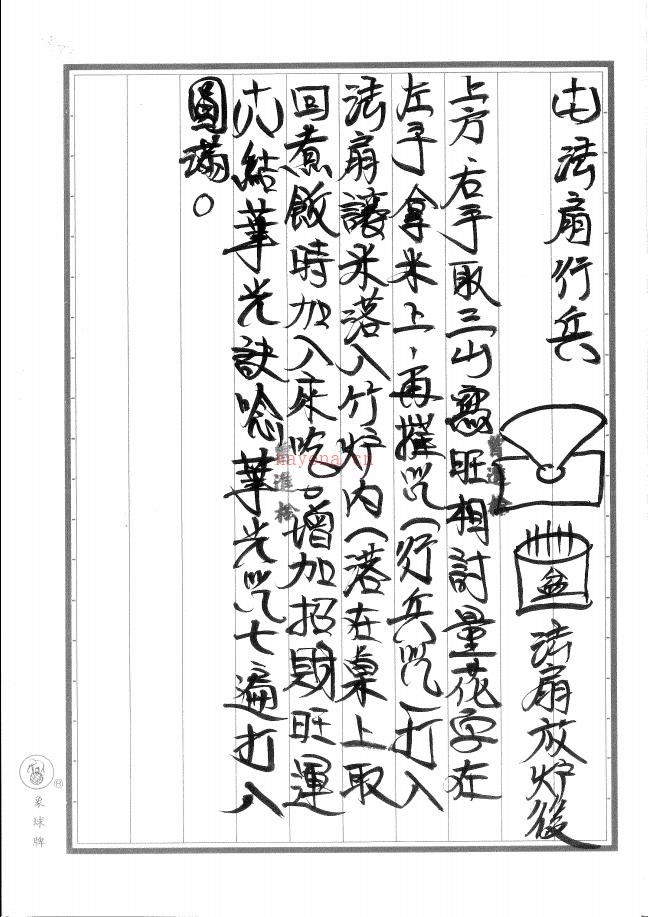 十七法扇行兵
盆
法扇放炉後
上方右手取三山寫旺相討量花字在
左手拿米上，再摧咒(行兵咒)打入
法扇讓米落入竹炉內(落在桌上取
回煮飯時加入來吃。增加招財旺運
十八結華光訣唸華光咒七遍打入
圓滿。
hayona.cn
象球牌
®